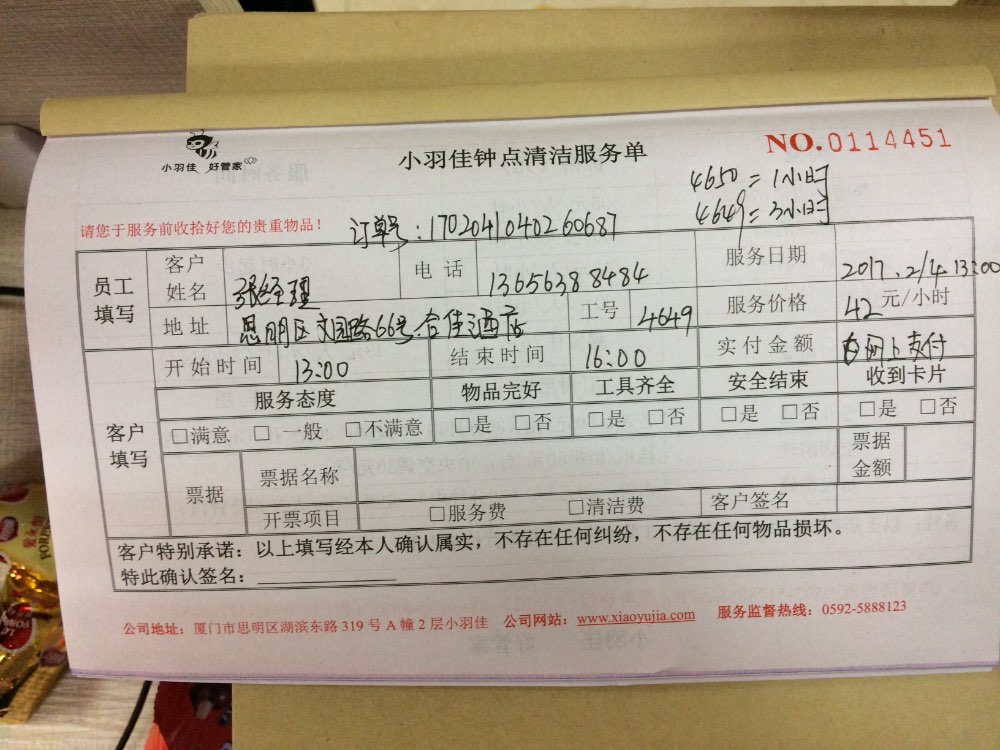 小羽佳 好管家
小羽佳钟点清洁服务单
NO.0114451
4650=1小时
4649=3小时
请您于服务前收拾好您的贵重物品!
订单号:17020410402 60687
员工填写
客户姓名 张经理 电话 13656388484 服务日期 2017.2/4 13:00
地址 思明区文园路66号合佳酒店 工号 4649 服务价格 42元/小时
客户填写
开始时间 13:00 结束时间 16:00 实付金额 网上支付
服务态度 物品完好 工具齐全 安全结束 收到卡片
□满意 □一般 □不满意 □是 □否 □是 □否 □是 □否 □是 □否
票据 票据名称 票据金额
开票项目 □服务费 □清洁费 客户签名
客户特别承诺:以上填写经本人确认属实,不存在任何纠纷,不存在任何物品损坏。
特此确认签名:
公司地址:厦门市思明区湖滨东路319号A幢2层小羽佳 公司网站:www.xiaoyujia.com 服务监督热线:0592-5888123